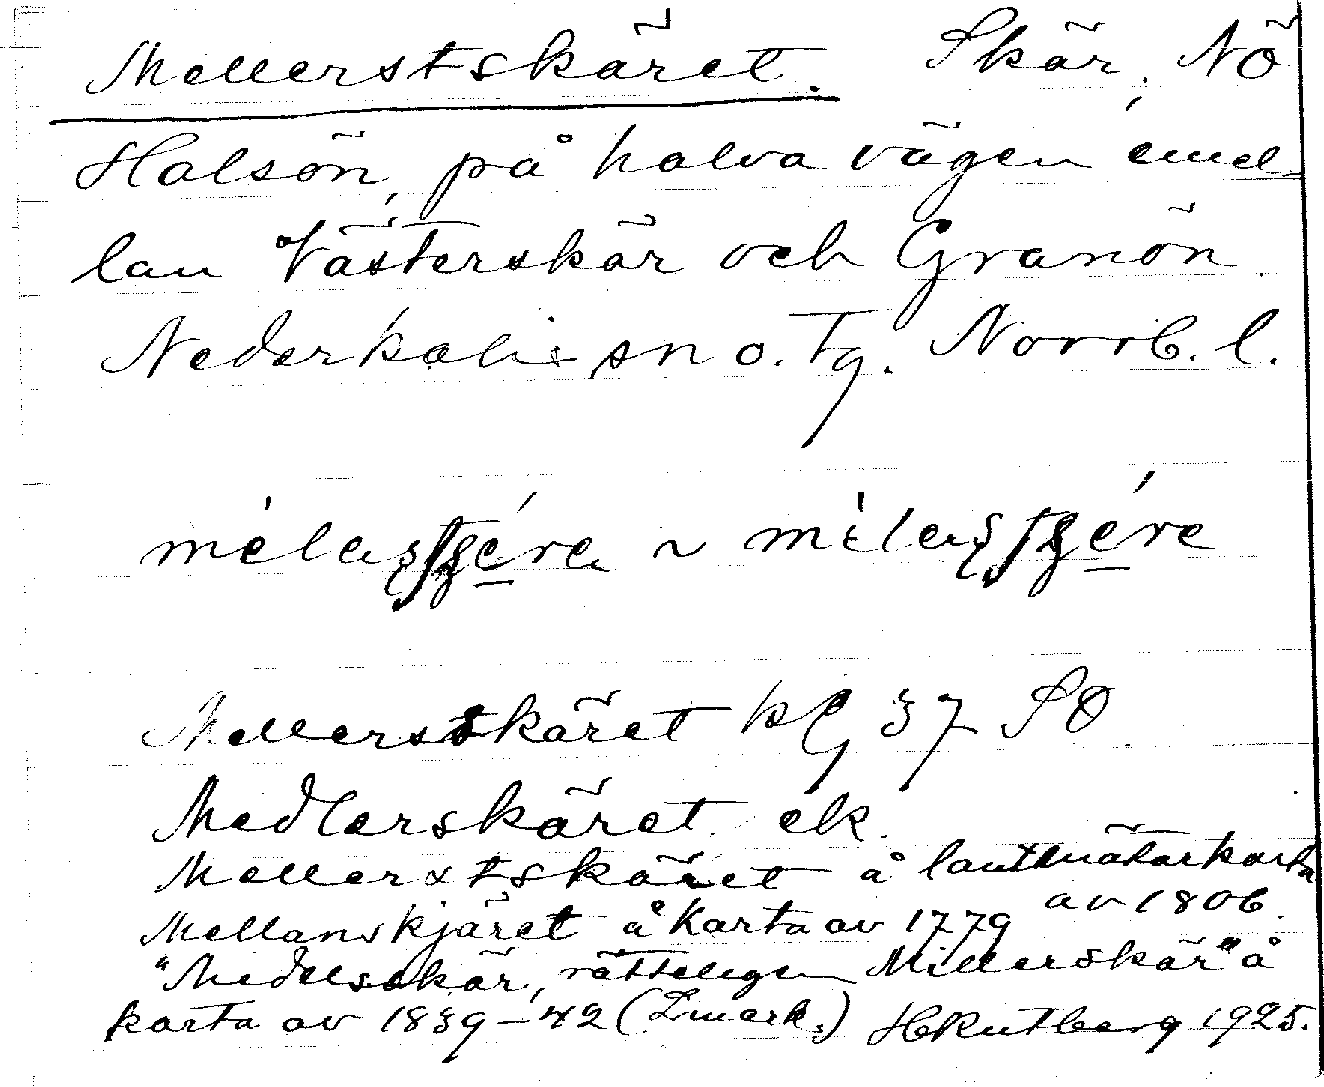 Mellerstskäret. Skär, NÖ
Halsön, på halva vägen emel-
lan Västerskär och Granön
Nederkalix sn o. Tg. Norrb. l.
Mellerstskäret kg 37 SO
Medlerskäret ek.
Mellerstskäret å lantmätarkarta
av 1806.
Mellanskjäret å karta av 1779
"Medelsskär, rätteligen Millerskär" å
karta av 1839–42 (Lmark.) HKutberg 1925.